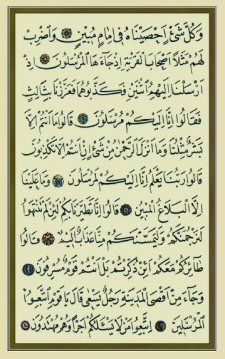 وَكُلَّ شَيْءٍ اَحْصَيْنَاهُ فِي اِمَامٍ مُبِينٍ وَاضْرِبْ
لَهُمْ مَثَلًا اَصْحَابَ الْقَرْيَةِ اِذْ جَاءَهَا الْمُرْسَلُونَ اِذْ
اَرْسَلْنَا اِلَيْهِمُ اثْنَيْنِ فَكَذَّبُوهُمَا فَعَزَّزْنَا بِثَالِثٍ
فَقَالُوا اِنَّا اِلَيْكُمْ مُرْسَلُونَ قَالُوا مَا اَنْتُمْ اِلَّا
بَشَرٌ مِثْلُنَا وَمَا اَنْزَلَ الرَّحْمٰنُ مِنْ شَيْءٍ اِنْ اَنْتُمْ اِلَّا تَكْذِبُونَ
قَالُوا رَبُّنَا يَعْلَمُ اِنَّا اِلَيْكُمْ لَمُرْسَلُونَ وَمَا عَلَيْنَا
اِلَّا الْبَلَاغُ الْمُبِينُ قَالُوا اِنَّا تَطَيَّرْنَا بِكُمْ لَئِنْ لَمْ تَنْتَهُوا
لَنَرْجُمَنَّكُمْ وَلَيَمَسَّنَّكُمْ مِنَّا عَذَابٌ اَلِيمٌ قَالُوا
طَائِرُكُمْ مَعَكُمْ اَئِنْ ذُكِّرْتُمْ بَلْ اَنْتُمْ قَوْمٌ مُسْرِفُونَ
وَجَاءَ مِنْ اَقْصَا الْمَدِينَةِ رَجُلٌ يَسْعٰى قَالَ يَا قَوْمِ اتَّبِعُوا
الْمُرْسَلِينَ اِتَّبِعُوا مَنْ لَا يَسْـَٔلُكُمْ اَجْرًا وَهُمْ مُهْتَدُونَ